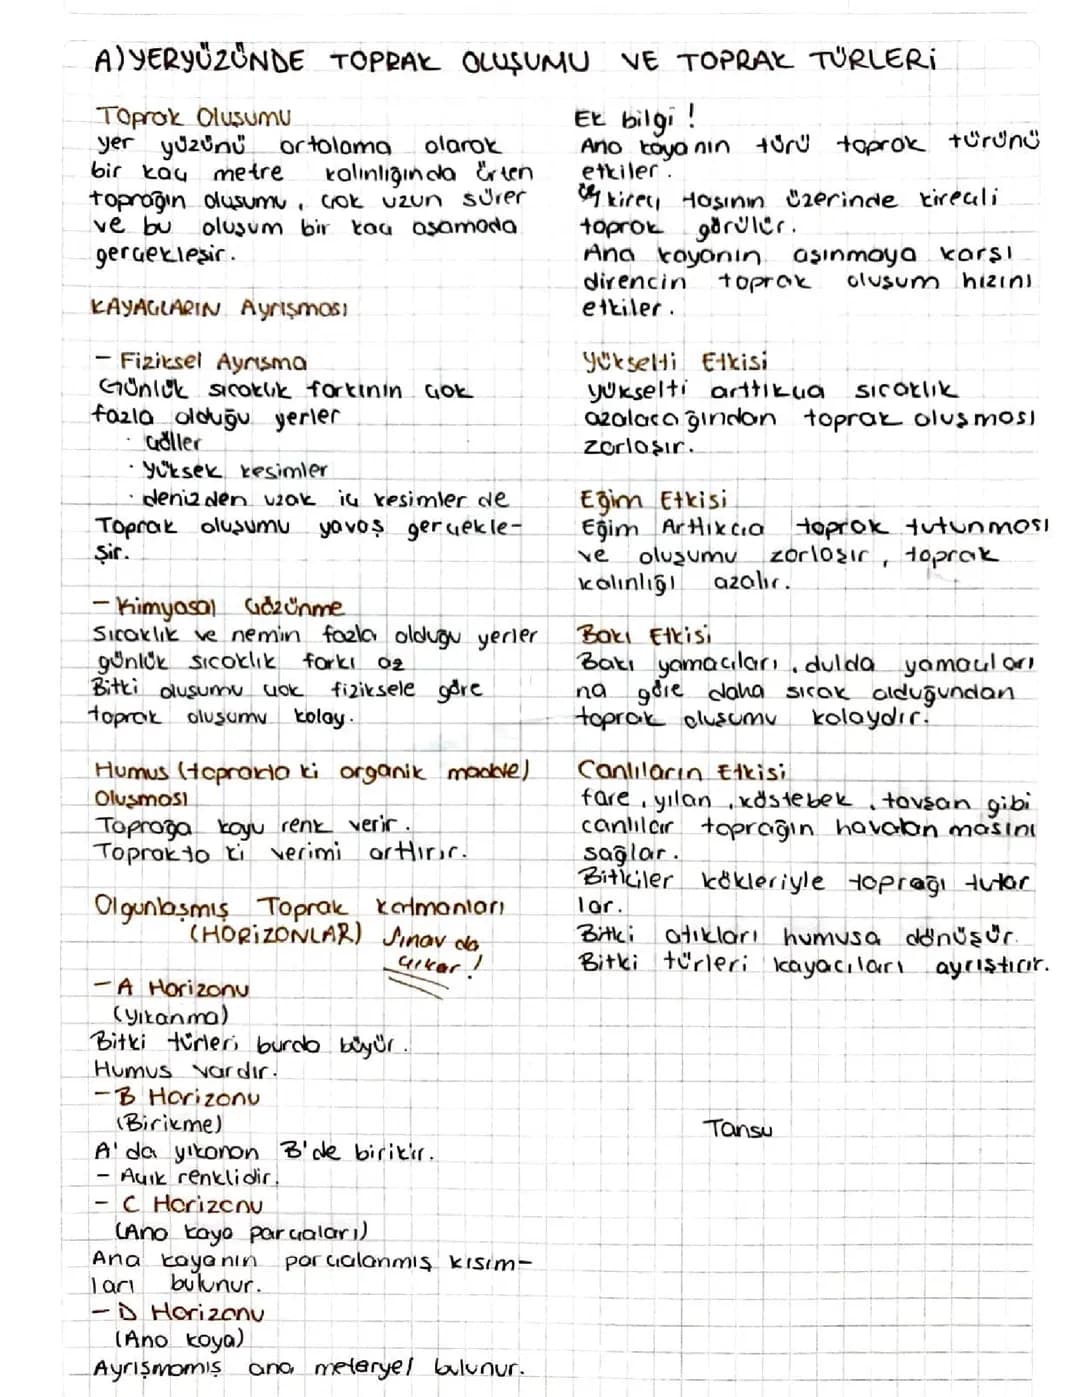 A) YERYÜZÜNDE TOPRAK OLUŞUMU VE TOPRAK TÜRLERİ
Toprak Oluşumu
yer yüzünü ortalama olarak
bir kaç metre kalınlığında örten
toprağın oluşumu, çok uzun sürer
ve bu oluşum bir kaç aşamada
gerçekleşir.
KAYAÇLARIN Ayrışması
- Fiziksel Ayrışma
Günlük sıcaklık farkının çok
fazla olduğu yerler
· Çöller
· yüksek kesimler
· denizden uzak iç kesimler de
Toprak oluşumu yavaş gerçekle-
şir.
- Kimyasal Çözünme
Sıcaklık ve nemin fazla olduğu yerler
günlük sıcaklık farkı az
Bitki oluşumu çok fiziksele göre
toprak oluşumu kolay.
Humus (toprakta ki organik madde)
Oluşması
Toprağa koyu renk verir.
Toprakta ki verimi arttırır.
Olgunlaşmış Toprak katmanları
(HORİZONLAR) Sınav da
çıkar!
- A Horizonu
(yıkanma)
Bitki türleri burda büyür.
Humus vardır.
- B Horizonu
(Birikme)
A'da yıkanan B'de birikir.
- Açık renklidir.
- C Horizonu
(Ana kaya parçaları)
Ana kayanın parçalanmış kısım-
ları bulunur.
- D Horizonu
(Ana kaya)
Ayrışmamış ana meteryel bulunur.
Ek bilgi!
Ana kayanın türü toprak türünü
etkiler.
ör/ kireç taşının üzerinde kireçli
toprak görülür.
Ana kayanın aşınmaya karşı
direncin toprak oluşum hızını
etkiler.
Yükselti Etkisi
yükselti arttıkça sıcaklık
azalacağından toprak oluşması
zorlaşır.
Eğim Etkisi
Eğim Arttıkça toprak tutunması
ve oluşumu zorlaşır, toprak
kalınlığı azalır.
Bakı Etkisi
Bakı yamaçları, dulda yamaçları
na göre daha sıcak olduğundan
toprak oluşumu kolaydır.
Canlıların Etkisi
fare, yılan, köstebek, tavşan gibi
canlılar toprağın havalanmasını
sağlar.
Bitkiler kökleriyle toprağı tutar
lar.
Bitki atıkları humusa dönüşür.
Bitki türleri kayaçları ayrıştırır.
Tansu